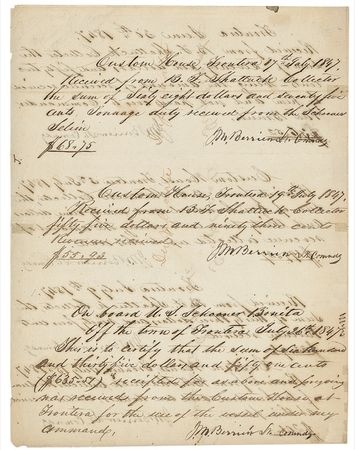 Custom House, Frontera 17th July 1847.
Received from B. F. Shattuck Collector
the sum of Sixty eight dollars and seventy five
cents Tonnage duty received from the Schooner
Selim
$68.75
J M Berrien Lt. Comndg
Custom House, Frontera 19th July 1847.
Received from B. F. Shattuck Collector
fifty five dollars and ninety three cents
Revenue received
$55.93
J M Berrien Lt. Comndg
On board U. S. Schooner Bonita
off the town of Frontera July 26th 1847
This is to certify that the sum of Six hundred
and thirty five dollars and fifty one cents
($635.51) receipted for as above and foregoing
was received from the Custom House at
Frontera for the use of the vessel under my
Command.
J M Berrien Lt. Comndg